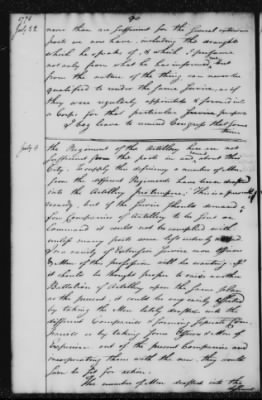 1776
July 22
more than are sufficient for the several extensive
posts we now have, including the draught
which he speaks of, & which I presume
not only from what he has informed, but
from the nature of the thing can never be
qualified to render the same Service, as if
they were regularly appointed & formed into
a Corps for that particular
I beg leave to remind Congress that some
time
the Regiment of the Artillery here are not
sufficient for the posts in and about this
City. To supply the deficiency a number of Men
from the different Regiments have been drafted
into the Artillery pro tempore. This is a present
remedy, but if the Service should demand
few Companies of Artillery to be sent on
command it could not be complied with
unless many posts were left under
In a variety of Services more Officers
& Men of this profession will be wanting. If
it should be thought proper to raise another
Battalion of Artillery upon the same plan
as the present, it could be very easily effected
by taking the Men lately drafted into the
different Companies & forming separate Com-
panies or by taking some Officers & Men of
experience out of the present Companies and
incorporating them with the new, they would
soon be fit for action.
The number of Men drafted into the